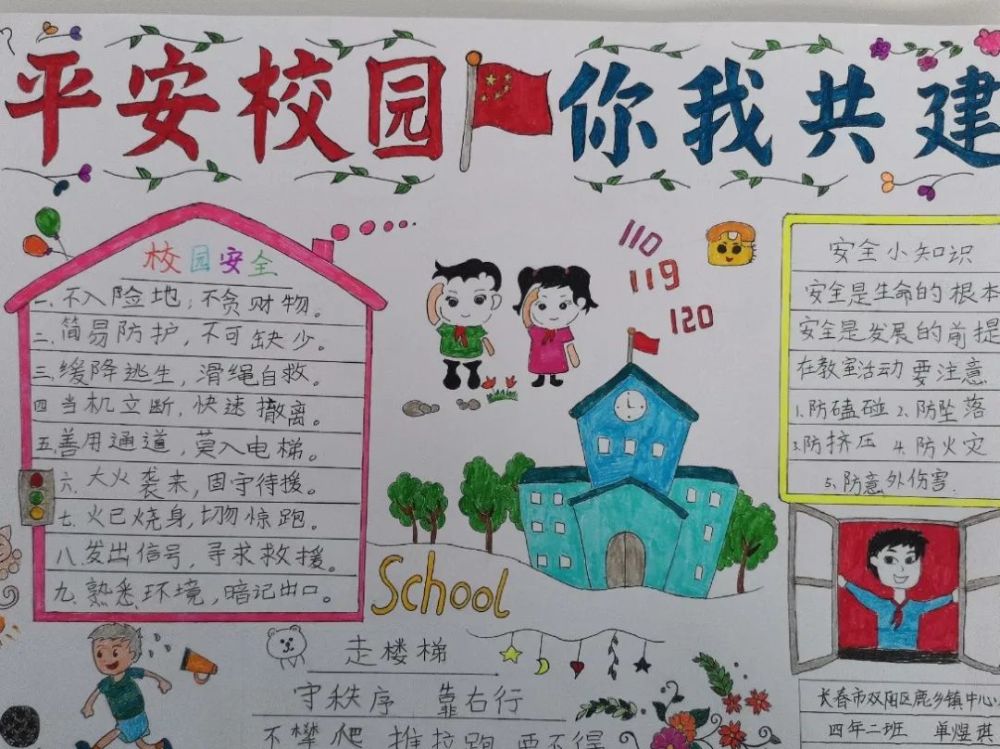 平安校园 你我共建
校园安全
一、不入险地，不贪财物。
二、简易防护，不可缺少。
三、缓降逃生，滑绳自救。
四 当机立断，快速撤离。
五、善用通道，莫入电梯。
六、大火袭来，固守待援。
七、火已烧身，切勿惊跑。
八、发出信号，寻求救援。
九、熟悉环境，暗记出口。
110
119
120
School
安全小知识
安全是生命的根本
安全是发展的前提
在教室活动要注意
1.防磕碰 2.防坠落
3.防挤压 4.防火灾
5.防意外伤害.
走楼梯
守秩序 靠右行
不攀爬 推拉跑 要不得
长春市双阳区鹿乡镇中心
四年二班 单煜琪